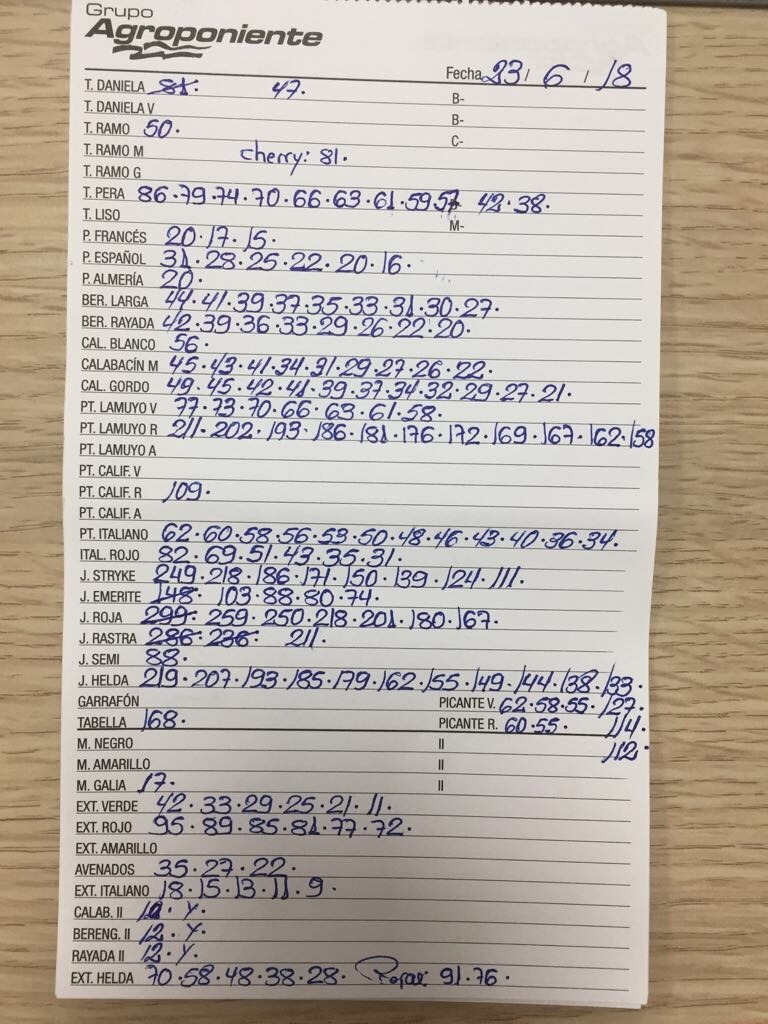 Grupo
Agroponiente
Fecha 23 / 6 / 18
T. DANIELA 81. 47. B-
T. DANIELA V B-
T. RAMO 50. C-
T. RAMO M cherry: 81.
T. RAMO G
T. PERA 86.79.74.70.66.63.61.59 57 42.38.
T. LISO M-
P. FRANCÉS 20.17.15.
P. ESPAÑOL 31.28.25.22.20.16.
P. ALMERÍA 20.
BER. LARGA 44.41.39.37.35.33.31.30.27.
BER. RAYADA 42.39.36.33.29.26.22.20.
CAL. BLANCO 56.
CALABACÍN M 45.43.41.34.31.29.27.26.22.
CAL. GORDO 49.45.42.41.39.37.34.32.29.27.21.
PT. LAMUYO V 77.73.70.66.63.61.58.
PT. LAMUYO R 211.202.193.186.181.176.172.169.167.162.158
PT. LAMUYO A
PT. CALIF. V
PT. CALIF. R 109.
PT. CALIF. A
PT. ITALIANO 62.60.58.56.53.50.48.46.43.40.36.34.
ITAL. ROJO 82.69.51.43.35.31.
J. STRYKE 249.218.186.171.150.139.124.111.
J. EMERITE 148. 103.88.80.74.
J. ROJA 299. 259.250.218.201.180.167.
J. RASTRA 286 236. 211.
J. SEMI 88.
J. HELDA 219.207.193.185.179.162.155.149.144.138.133.
GARRAFÓN PICANTE V. 62.58.55. 127.
TABELLA 168. PICANTE R. 60.55. 114.
M. NEGRO II 112.
M. AMARILLO II
M. GALIA 17. II
EXT. VERDE 42.33.29.25.21.11.
EXT. ROJO 95.89.85.81.77.72.
EXT. AMARILLO
AVENADOS 35.27.22.
EXT. ITALIANO 18.15.13.11.9.
CALAB. II 12. Y.
BERENG. II 12. Y.
RAYADA II 12. Y.
EXT. HELDA 70.58.48.38.28. 91.76.